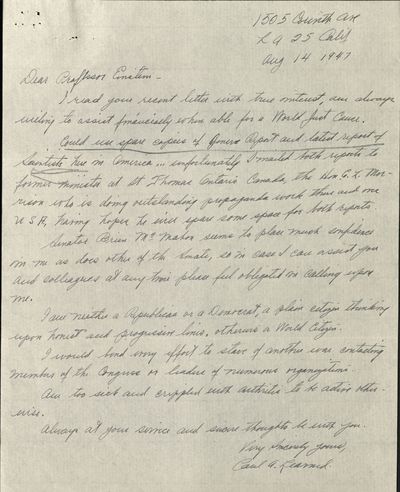 1505 Corinth Ave
L A 25 Calif
Aug 14 1947
Dear Professor Einstein -
I read your recent letter with true interest, am always
willing to assist financially when able for a World Just Cause.
Could use spare copies of report and latest report of
Scientists here in America... unfortunately I mailed both reports to
former minister at St Thomas Ontario Canada, the Hon G. L. Mor-
rison who is doing outstanding propaganda work there and in
U S A, having hopes he will spare some space for both reports.
Senator Brien McMahon seems to place much confidence
in me as does other of the Senate, so in case I can assist you
and colleagues at any time please feel obligated in calling upon
me.
I am neither a Republican or a Democrat, a plain citizen thinking
upon honest and progressive lines, otherwise a World Citizen.
I would lend every effort to stave of another war contacting
members of the Congress or leaders of numerous organizations.
Am too sick and crippled with arthritis to be active other-
wise.
Always at your service and sincere thoughts be with you.
Very Sincerely yours,
Paul A. Learned.